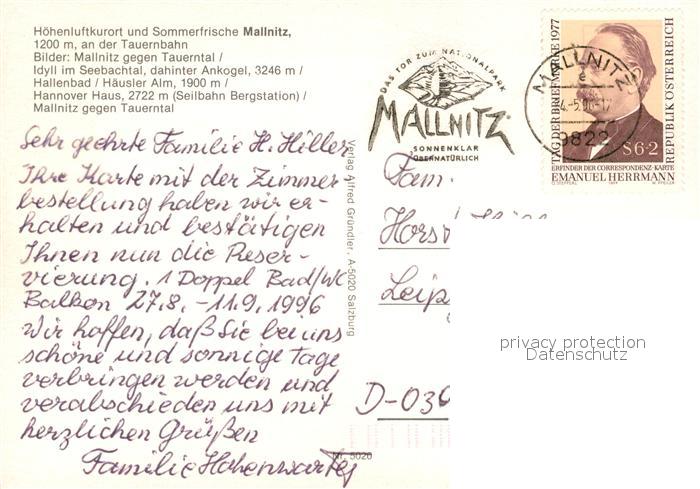 Höhenluftkurort und Sommerfrische Mallnitz,
1200 m, an der Tauernbahn
Bilder: Mallnitz gegen Tauerntal /
Idyll im Seebachtal, dahinter Ankogel, 3246 m /
Hallenbad / Häusler Alm, 1900 m /
Hannover Haus, 2722 m (Seilbahn Bergstation) /
Mallnitz gegen Tauerntal
Sehr geehrte Familie H. Hiller
Ihre Karte mit der Zimmer
bestellung haben wir er-
halten und bestätigen
Ihnen nun die Reser-
vierung. 1 Doppel Bad/WC
Balkon 27.8. - 11.9. 1996
Wir hoffen, daß Sie bei uns
schöne und sonnige Tage
verbringen werden und
verabschieden uns mit
herzlichen Grüßen
Familie Hohenwarter
Verlag Alfred Gründler, A-5020 Salzburg
Nr. 5020
DAS TOR ZUM NATIONALPARK
MALLNITZ
SONNENKLAR
ÜBERNATÜRLICH
MALLNITZ
9822
TAG DER BRIEFMARKE 1977
REPUBLIK ÖSTERREICH
S 6+2
ERFINDER DER CORRESPONDENZ-KARTE
EMANUEL HERRMANN
1977
Fam.
Horst
Leip
D-036
privacy protection
Datenschutz